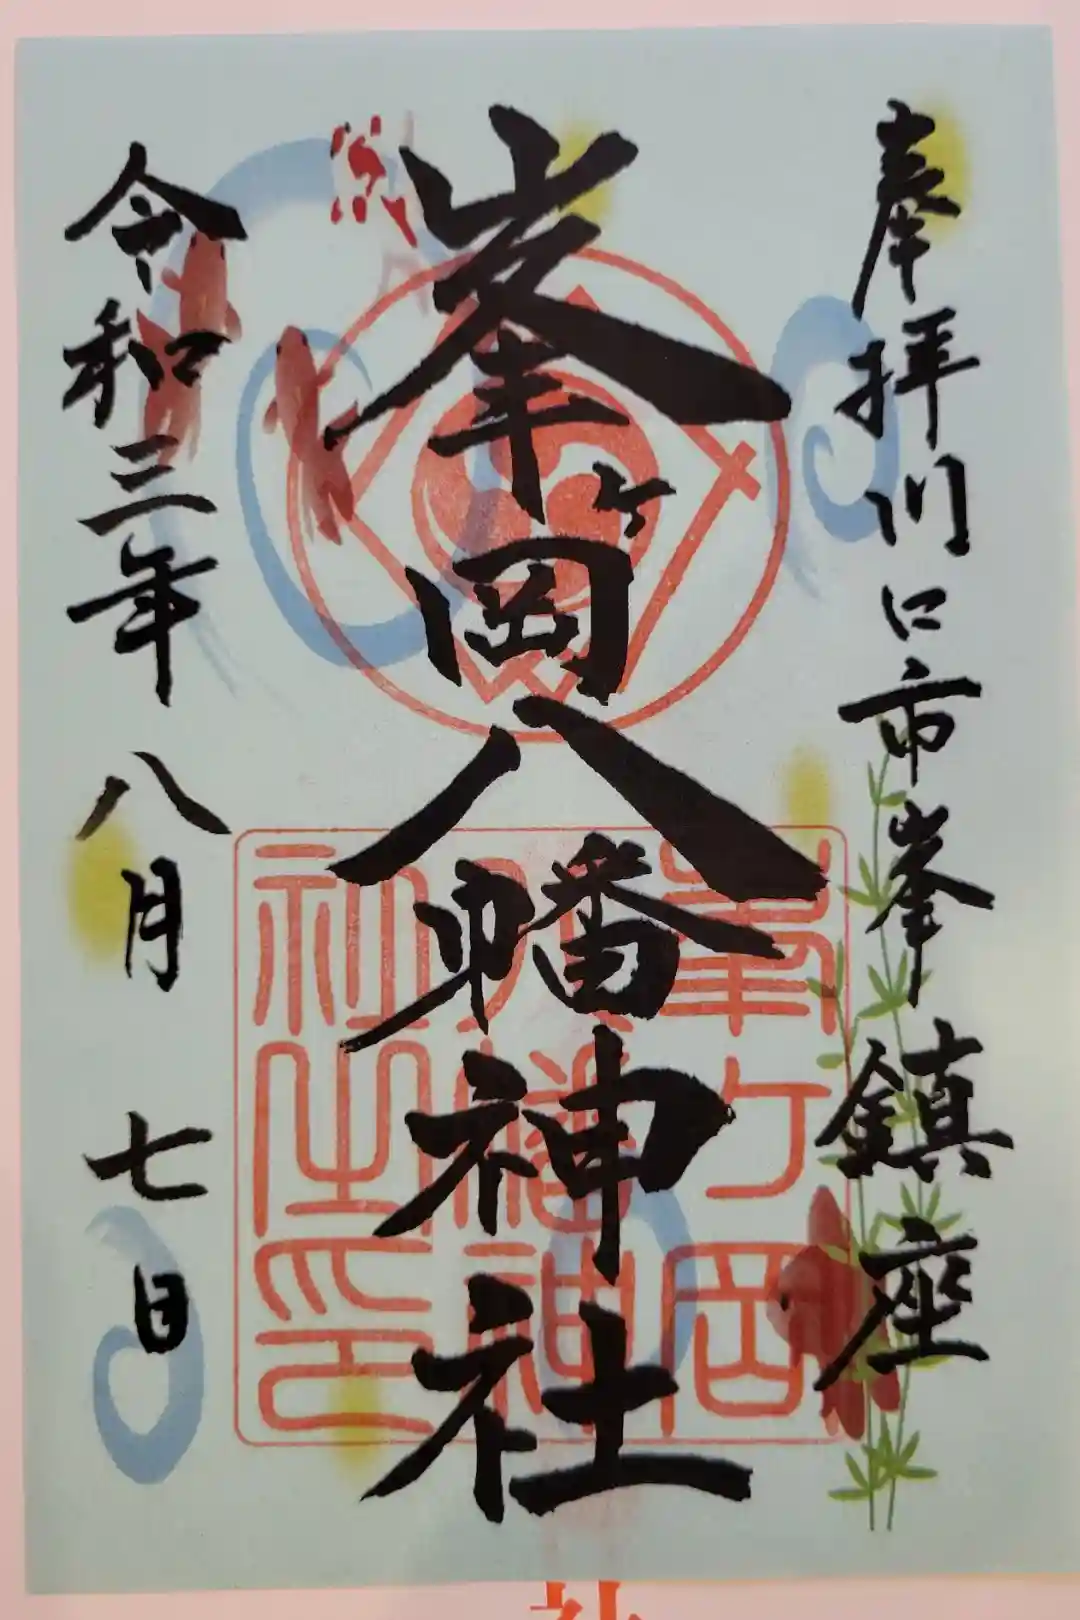 奉拝川口市峯鎮座
峯ヶ岡八幡神社
令和三年八月七日
峯ヶ岡
八幡神
社之印
社